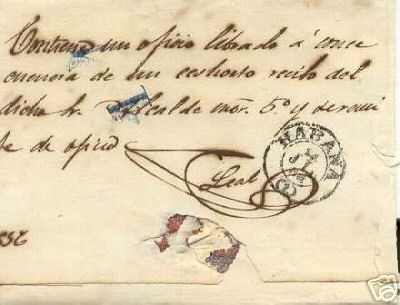 Contiene un oficio librado á conse
cuencia de un exshorto recibo del
dicho Sr. Alcalde mor. 5º y se remi
te de oficio
Leal
HABANA